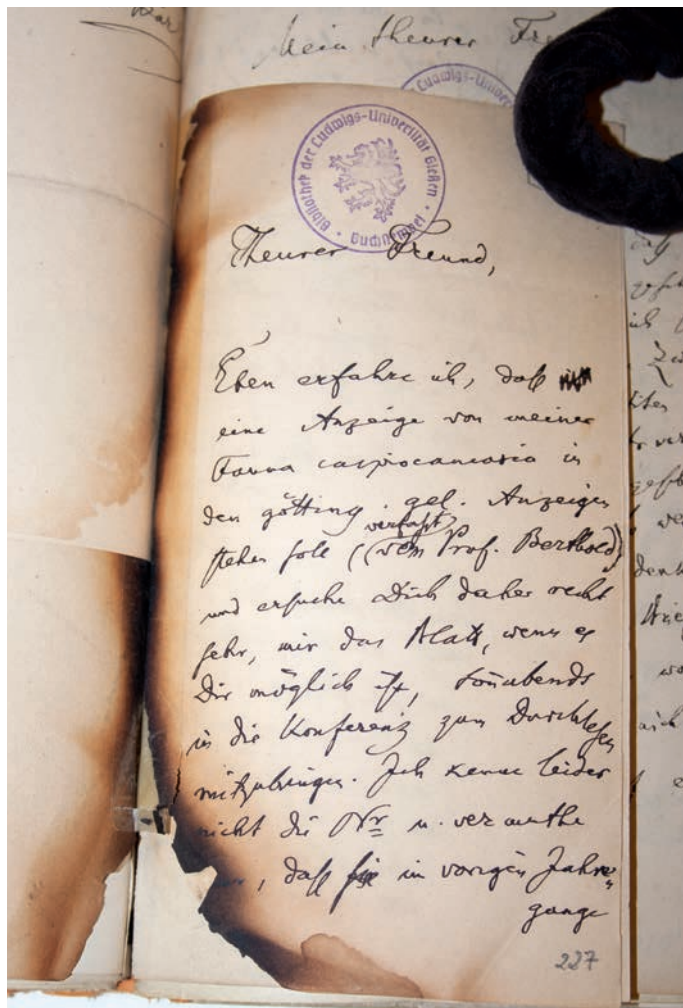 War
Mein theurer Fre
Bibliothek der Ludwigs-Universität Gießen
Theurer Freund,
Eben erfahre ich, daß
eine Anzeige von meiner
Fauna caspiocaucasia in
den götting. gel. Anzeigen
stehen soll (verfaßt vom Prof. Berthold)
und ersuche Dich daher recht
sehr, mir das Blatt, wenn es
Dir möglich ist, Sonabends
in die Konferenz zum Durchlesen
mitzubringen. Ich kenne leider
nicht die Nr u. vermuthe
, daß sie in vorigen Jahr„
gange
227